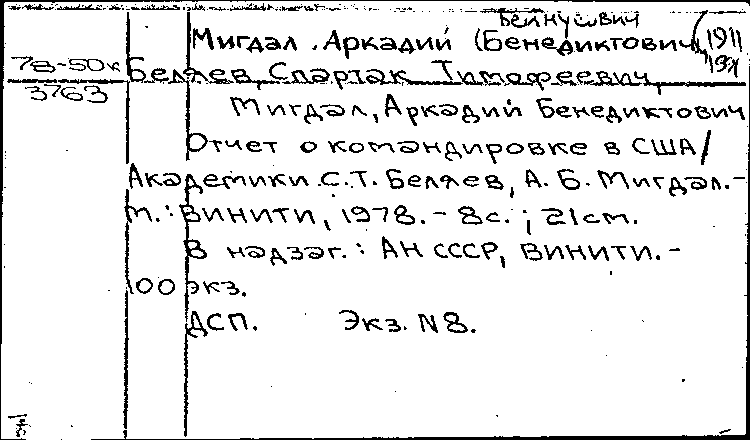 Бейнусович
Мигдал, Аркадий (Бенедиктович) 1911
78-50к
Беляев, Спартак Тимофеевич,
3763
Мигдал, Аркадий Бенедиктович
Отчет о командировке в США/
Академики С.Т. Беляев, А. Б. Мигдал. -
М.: ВИНИТИ, 1978. - 8с. ; 21см.
В надзаг.: АН СССР, ВИНИТИ. -
100 экз.
ДСП. Экз. N8.